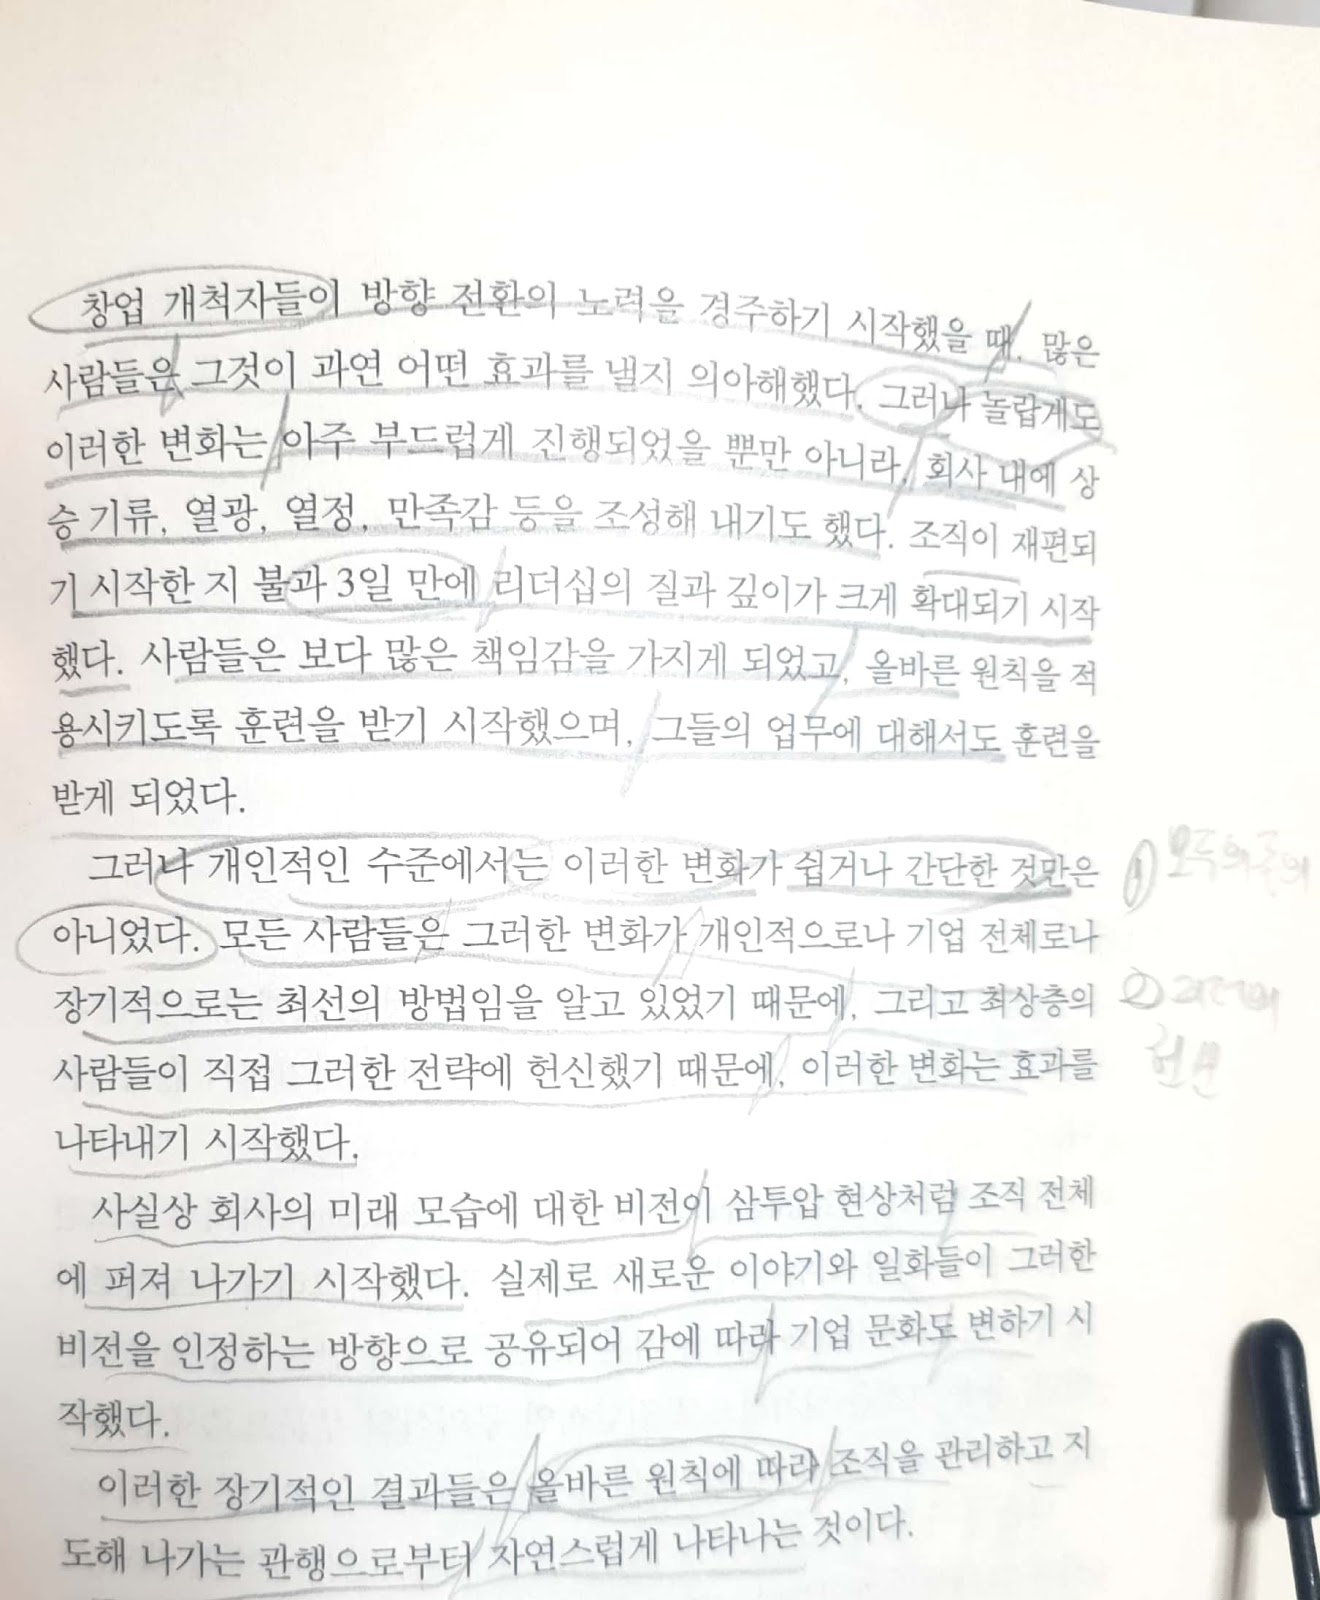 창업 개척자들이 방향 전환의 노력을 경주하기 시작했을 때, 많은
사람들은 그것이 과연 어떤 효과를 낼지 의아해했다. 그러나 놀랍게도
이러한 변화는 아주 부드럽게 진행되었을 뿐만 아니라, 회사 내에 상
승 기류, 열광, 열정, 만족감 등을 조성해 내기도 했다. 조직이 재편되
기 시작한 지 불과 3일 만에 리더십의 질과 깊이가 크게 확대되기 시작
했다. 사람들은 보다 많은 책임감을 가지게 되었고, 올바른 원칙을 적
용시키도록 훈련을 받기 시작했으며, 그들의 업무에 대해서도 훈련을
받게 되었다.
그러나 개인적인 수준에서는 이러한 변화가 쉽거나 간단한 것만은
아니었다. 모든 사람들은 그러한 변화가 개인적으로나 기업 전체로나
장기적으로는 최선의 방법임을 알고 있었기 때문에, 그리고 최상층의
사람들이 직접 그러한 전략에 헌신했기 때문에, 이러한 변화는 효과를
나타내기 시작했다.
사실상 회사의 미래 모습에 대한 비전이 삼투압 현상처럼 조직 전체
에 퍼져 나가기 시작했다. 실제로 새로운 이야기와 일화들이 그러한
비전을 인정하는 방향으로 공유되어 감에 따라 기업 문화도 변하기 시
작했다.
이러한 장기적인 결과들은 올바른 원칙에 따라 조직을 관리하고 지
도해 나가는 관행으로부터 자연스럽게 나타나는 것이다.
①
②